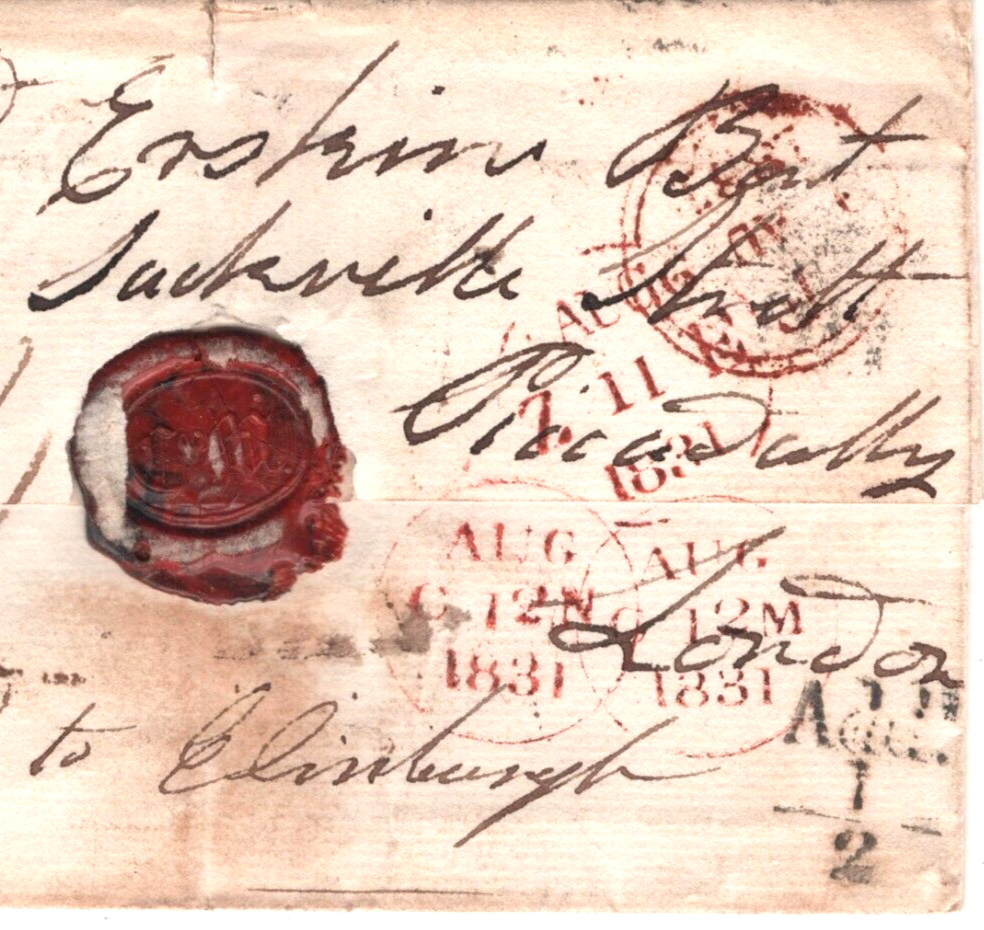 Erskine Bart
Sackville Street
Piccadilly
London
to Edinburgh
AUG
Z 11
1831
AUG
C 12N
1831
AUG
C 12M
1831
Add.
1
2